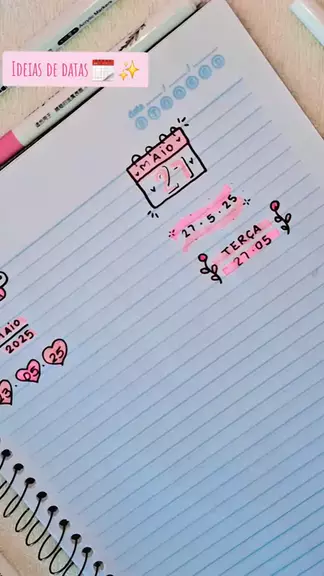 IDEIAS DE DATAS
data
MAIO
27
27.5.25
TERÇA
27.05
MAIO
2025
05.25